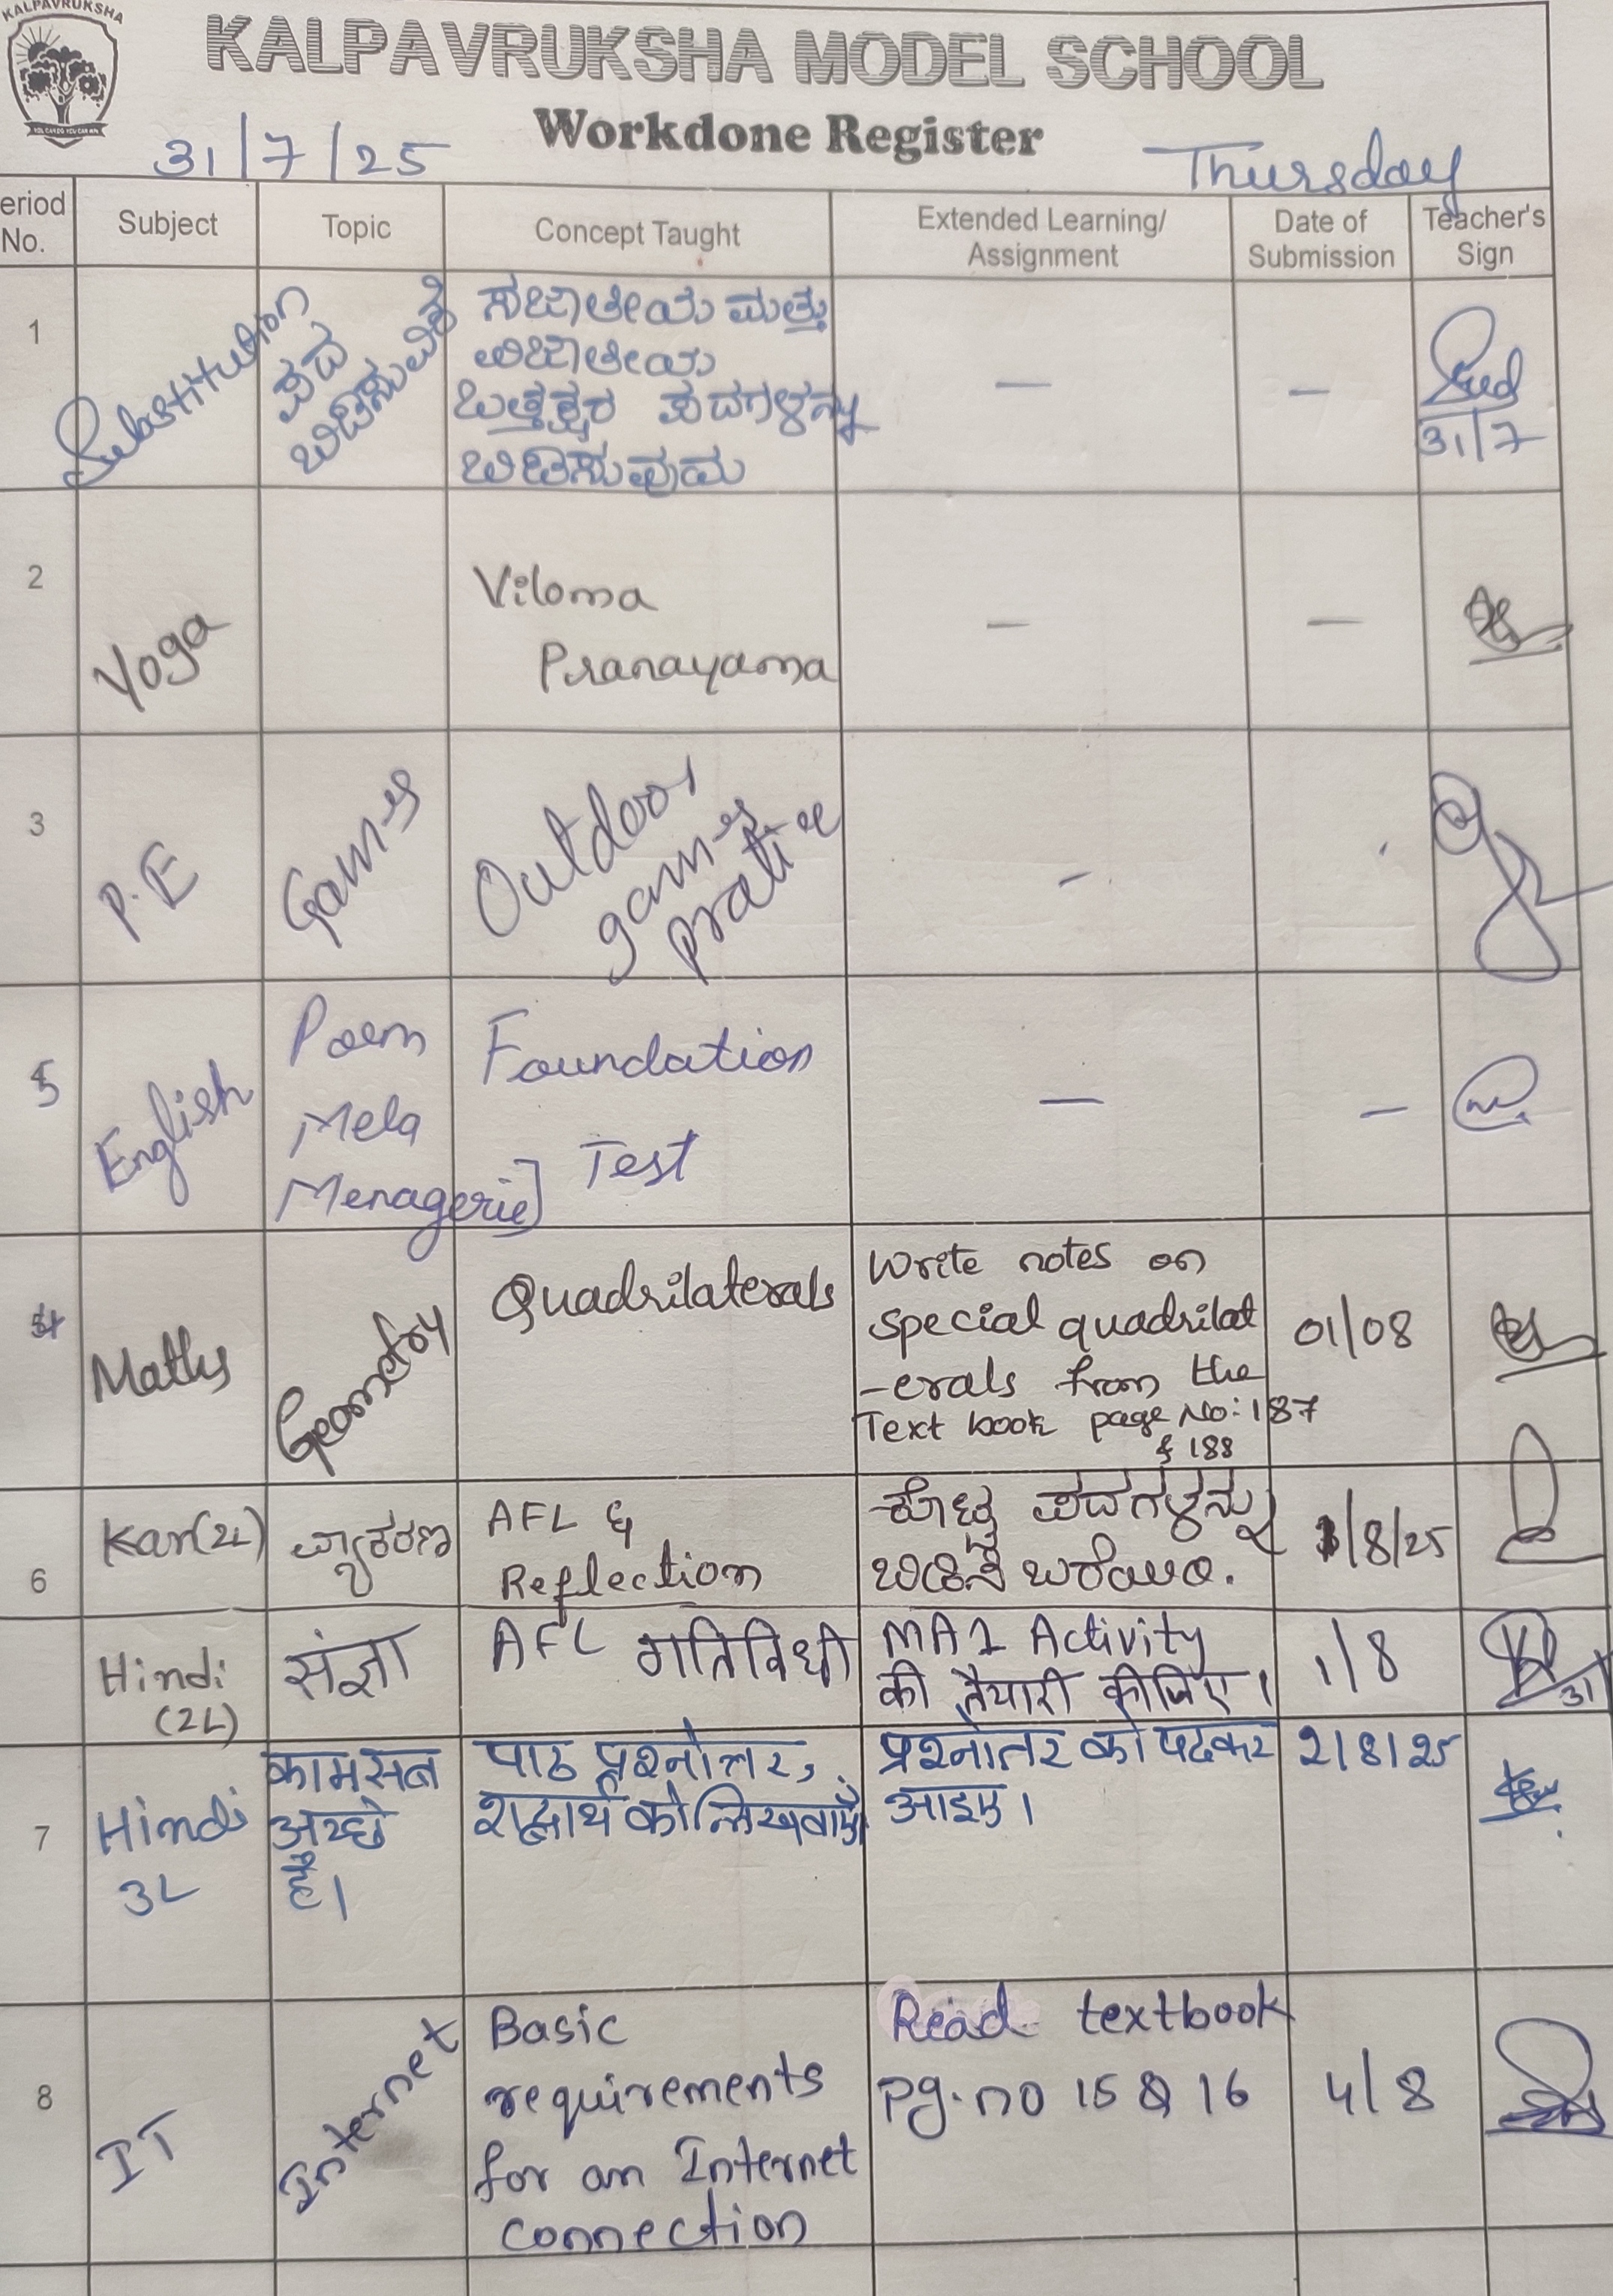 KALPAVRUKSHA
KALPAVRUKSHA MODEL SCHOOL
Workdone Register
31/7/25
Thursday
eriod No.
Subject
Topic
Concept Taught
Extended Learning/
Assignment
Date of
Submission
Teacher's
Sign
1
Substitution
ಪದ
ಬಿಡಿಸುವಿಕೆ
ಸಜಾತೀಯ ಮತ್ತು
ವಿಜಾತೀಯ
ಒತ್ತಕ್ಷರ ಪದಗಳನ್ನು
ಬಿಡಿಸುವುದು
—
—
31/7
2
Yoga
Viloma
Pranayama
—
—
3
P.E
Games
Outdoor
games
pratice
-
5
English
Poem
Mela
Menagerie]
Foundation
Test
—
—
4
Maths
Geometry
Quadrilaterals
Write notes on
special quadrilat
-erals from the
Text book page No: 187
& 188
01/08
6
Kan(2L)
ವ್ಯಾಕರಣ
AFL &
Reflection
ಕೊಟ್ಟ ಪದಗಳನ್ನು
ಬಿಡಿಸಿ ಬರೆಯಿರಿ.
1/8/25
Hindi
(2L)
संज्ञा
AFL गतिविधी
MA1 Activity
की तैयारी कीजिए।
1/8
31
7
Hindi
3L
काम सब
अच्छे
है।
पाठ प्रश्नोत्तर,
शब्दार्थ को लिखवाएँ
प्रश्नोतर को पढकर
आइए।
2/8/25
8
IT
Internet
Basic
requirements
for an Internet
connection
Read textbook
pg.no 15 & 16
4/8